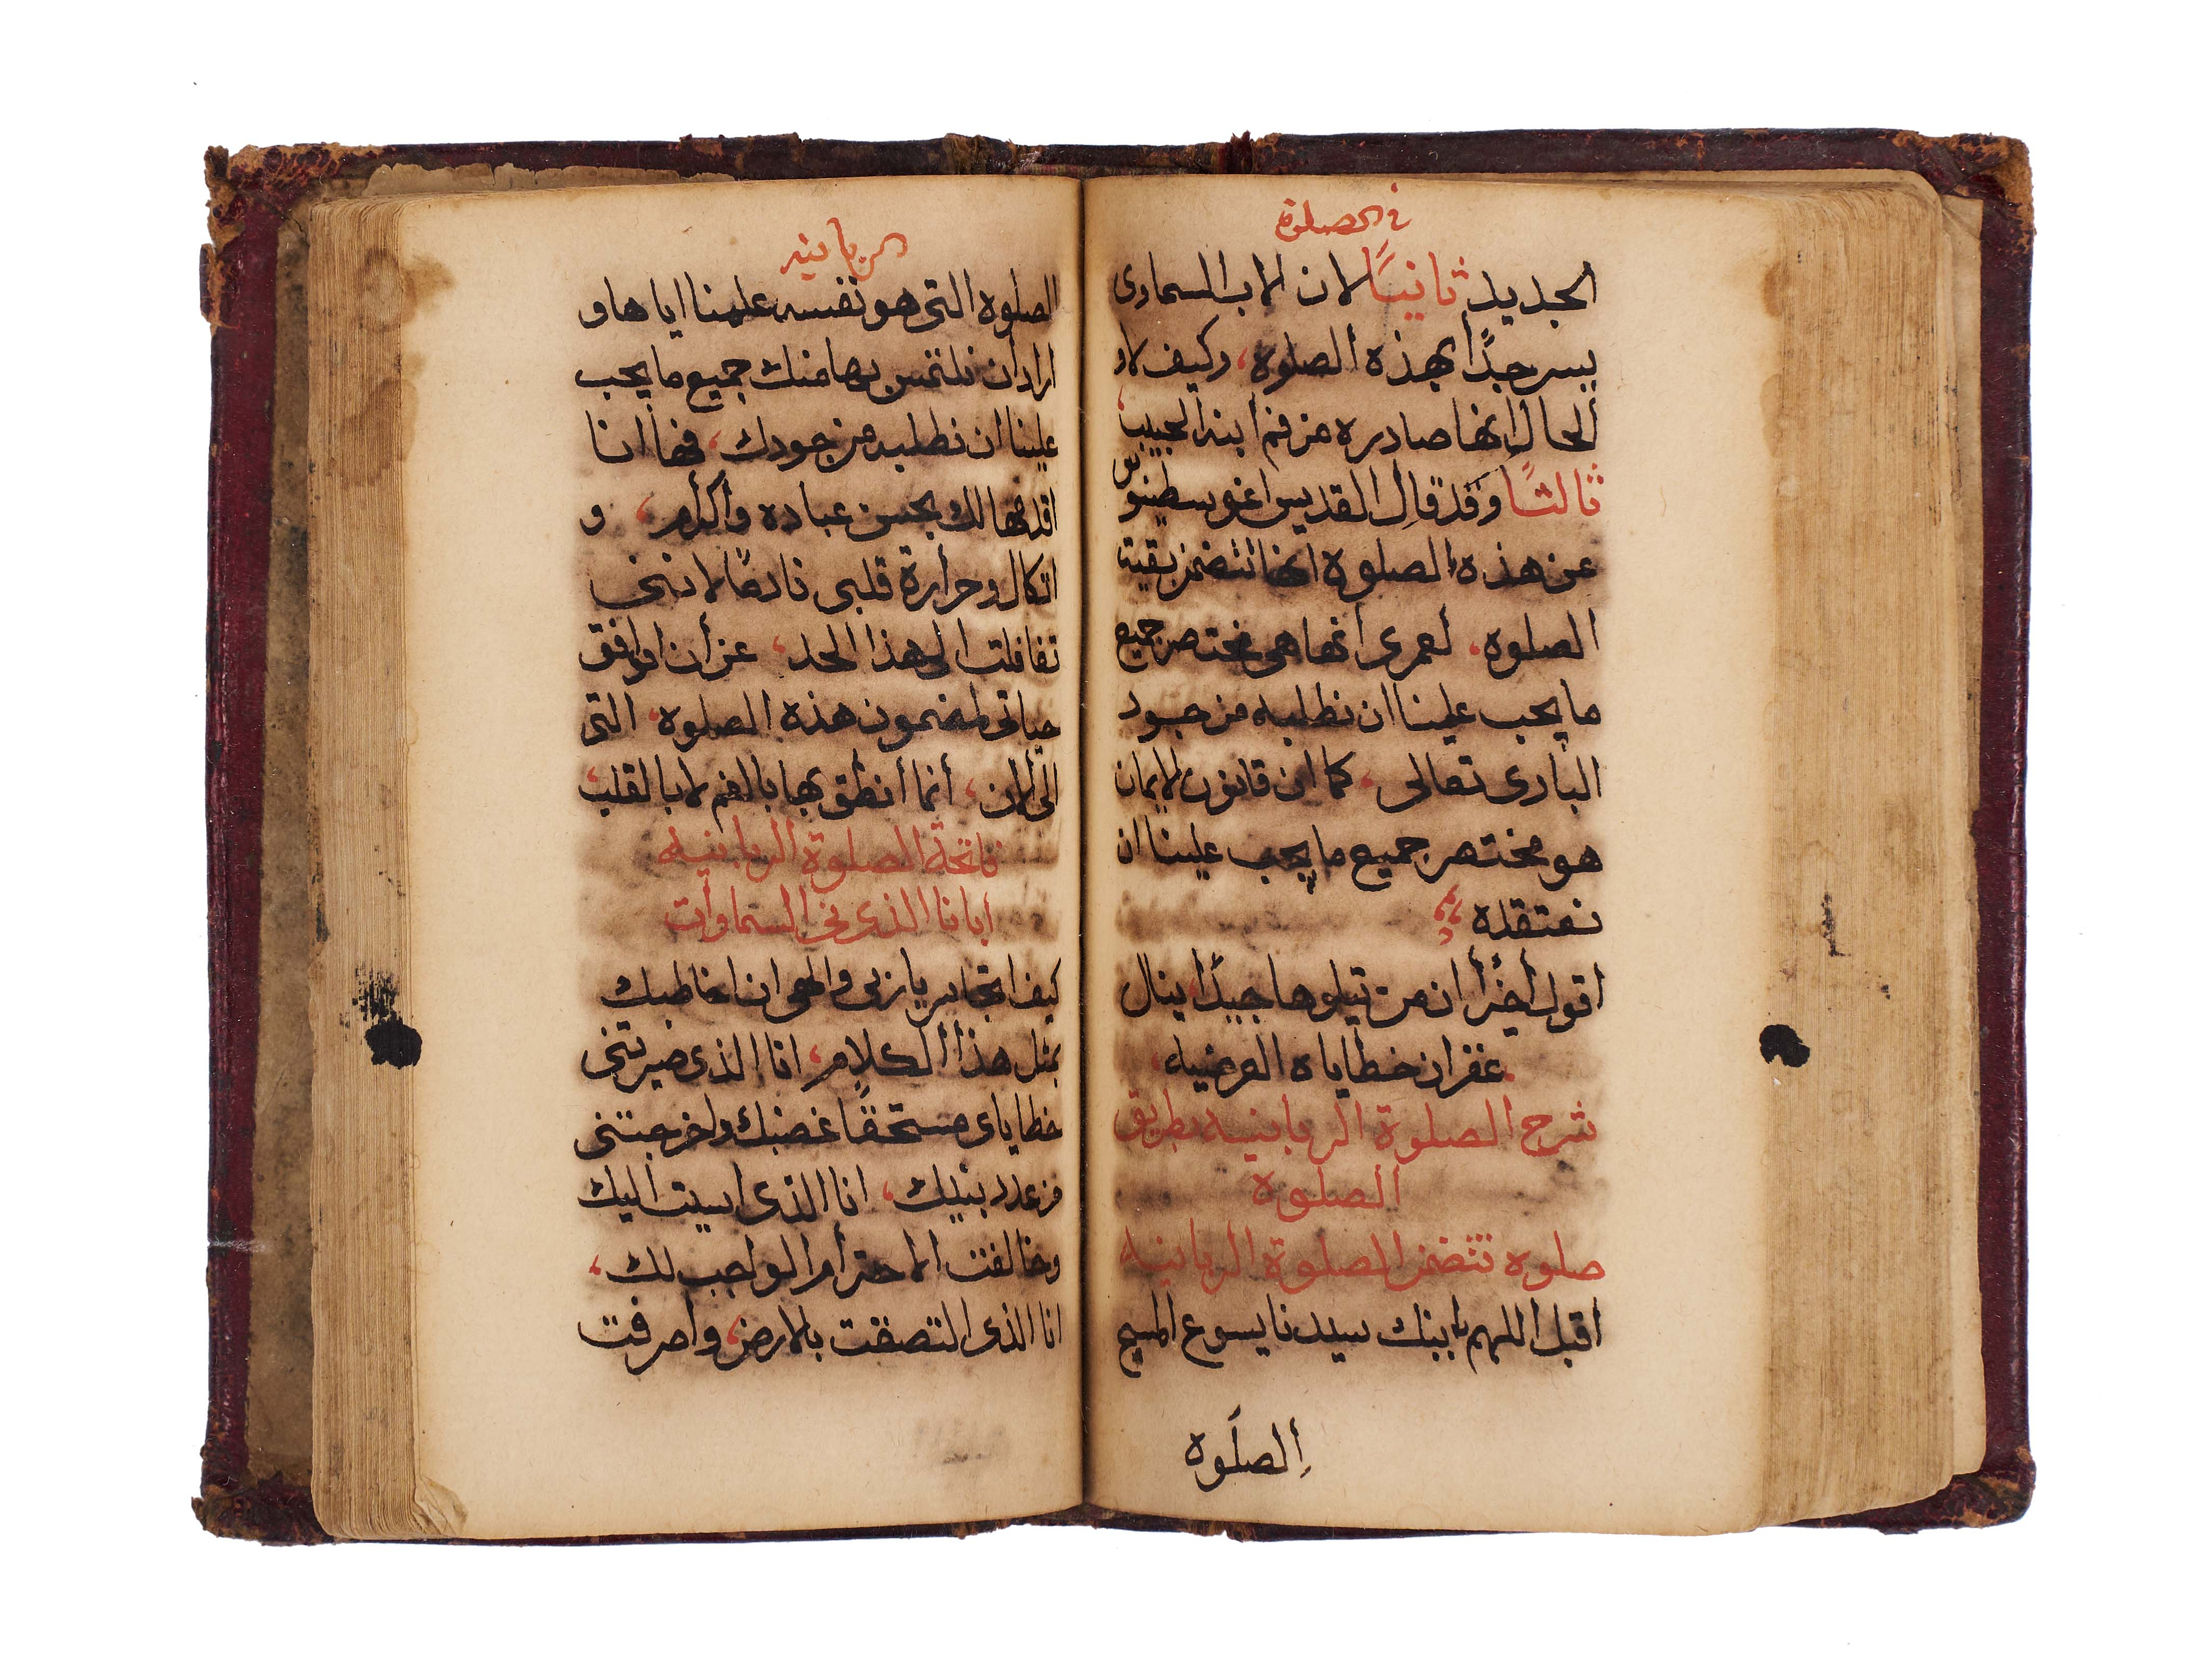 في الصلوة
الجديد ثانيًا لان الاب السماوى
يسر جدًا بهذه الصلوة، وكيف لا و
الحال انها صادره من فم ابنه الحبيب،
ثالثًا وَقد قال القديس اغوسطينوس
عن هذه الصلوة انها تتضمن بقيت
الصلوه، لعمرى انها هى مختصر جميع
ما يجب علينا ان نطلبه من جود
البارى تعالى، كما ان قانون الايمان
هو مختصر جميع ما يجب علينا ان
نعتقده
اقول أخيرًا ان من تيلوها جيدًا ينال
غفران خطاياه العرضيه،
شرح الصلوة الربانيه بطريق
الصلوة
صلوه تتضمن الصلوة الربانيه
اقبل اللهم بابنك سيدنا يسوع المسيح
الصلَوه
الربانيه
الصلوة التى هو نفسه علمنا اياها و
اراد ان نلتمس بها منك جميع ما يجب
علينا ان نطلبه من جودك، فها انا
اقدمها لك بحسن عباده واكرام، و
اتكال وحرارة قلبى نادمًا لاننى
تغافلت الى هذا الحد، عن ان اوافق
حياتى لمضمون هذه الصلوه، التى
الى الان، أنما أنطق بها بالفم لا بالقلب،
فاتحة الصلوة الربانيه
ابانا الذى فى السماوات
كيف اتجاسر يا ربى والهى ان اخاطبك
بمثل هذا الكلام، انا الذى صيرتنى
خطاياى مستحقًا غضبك واخرجتنى
من عدد بنيك، انا الذى اسيت اليك
وخالفت الاحترام الواجب لك،
انا الذى التصقت بالارض، واصرفت